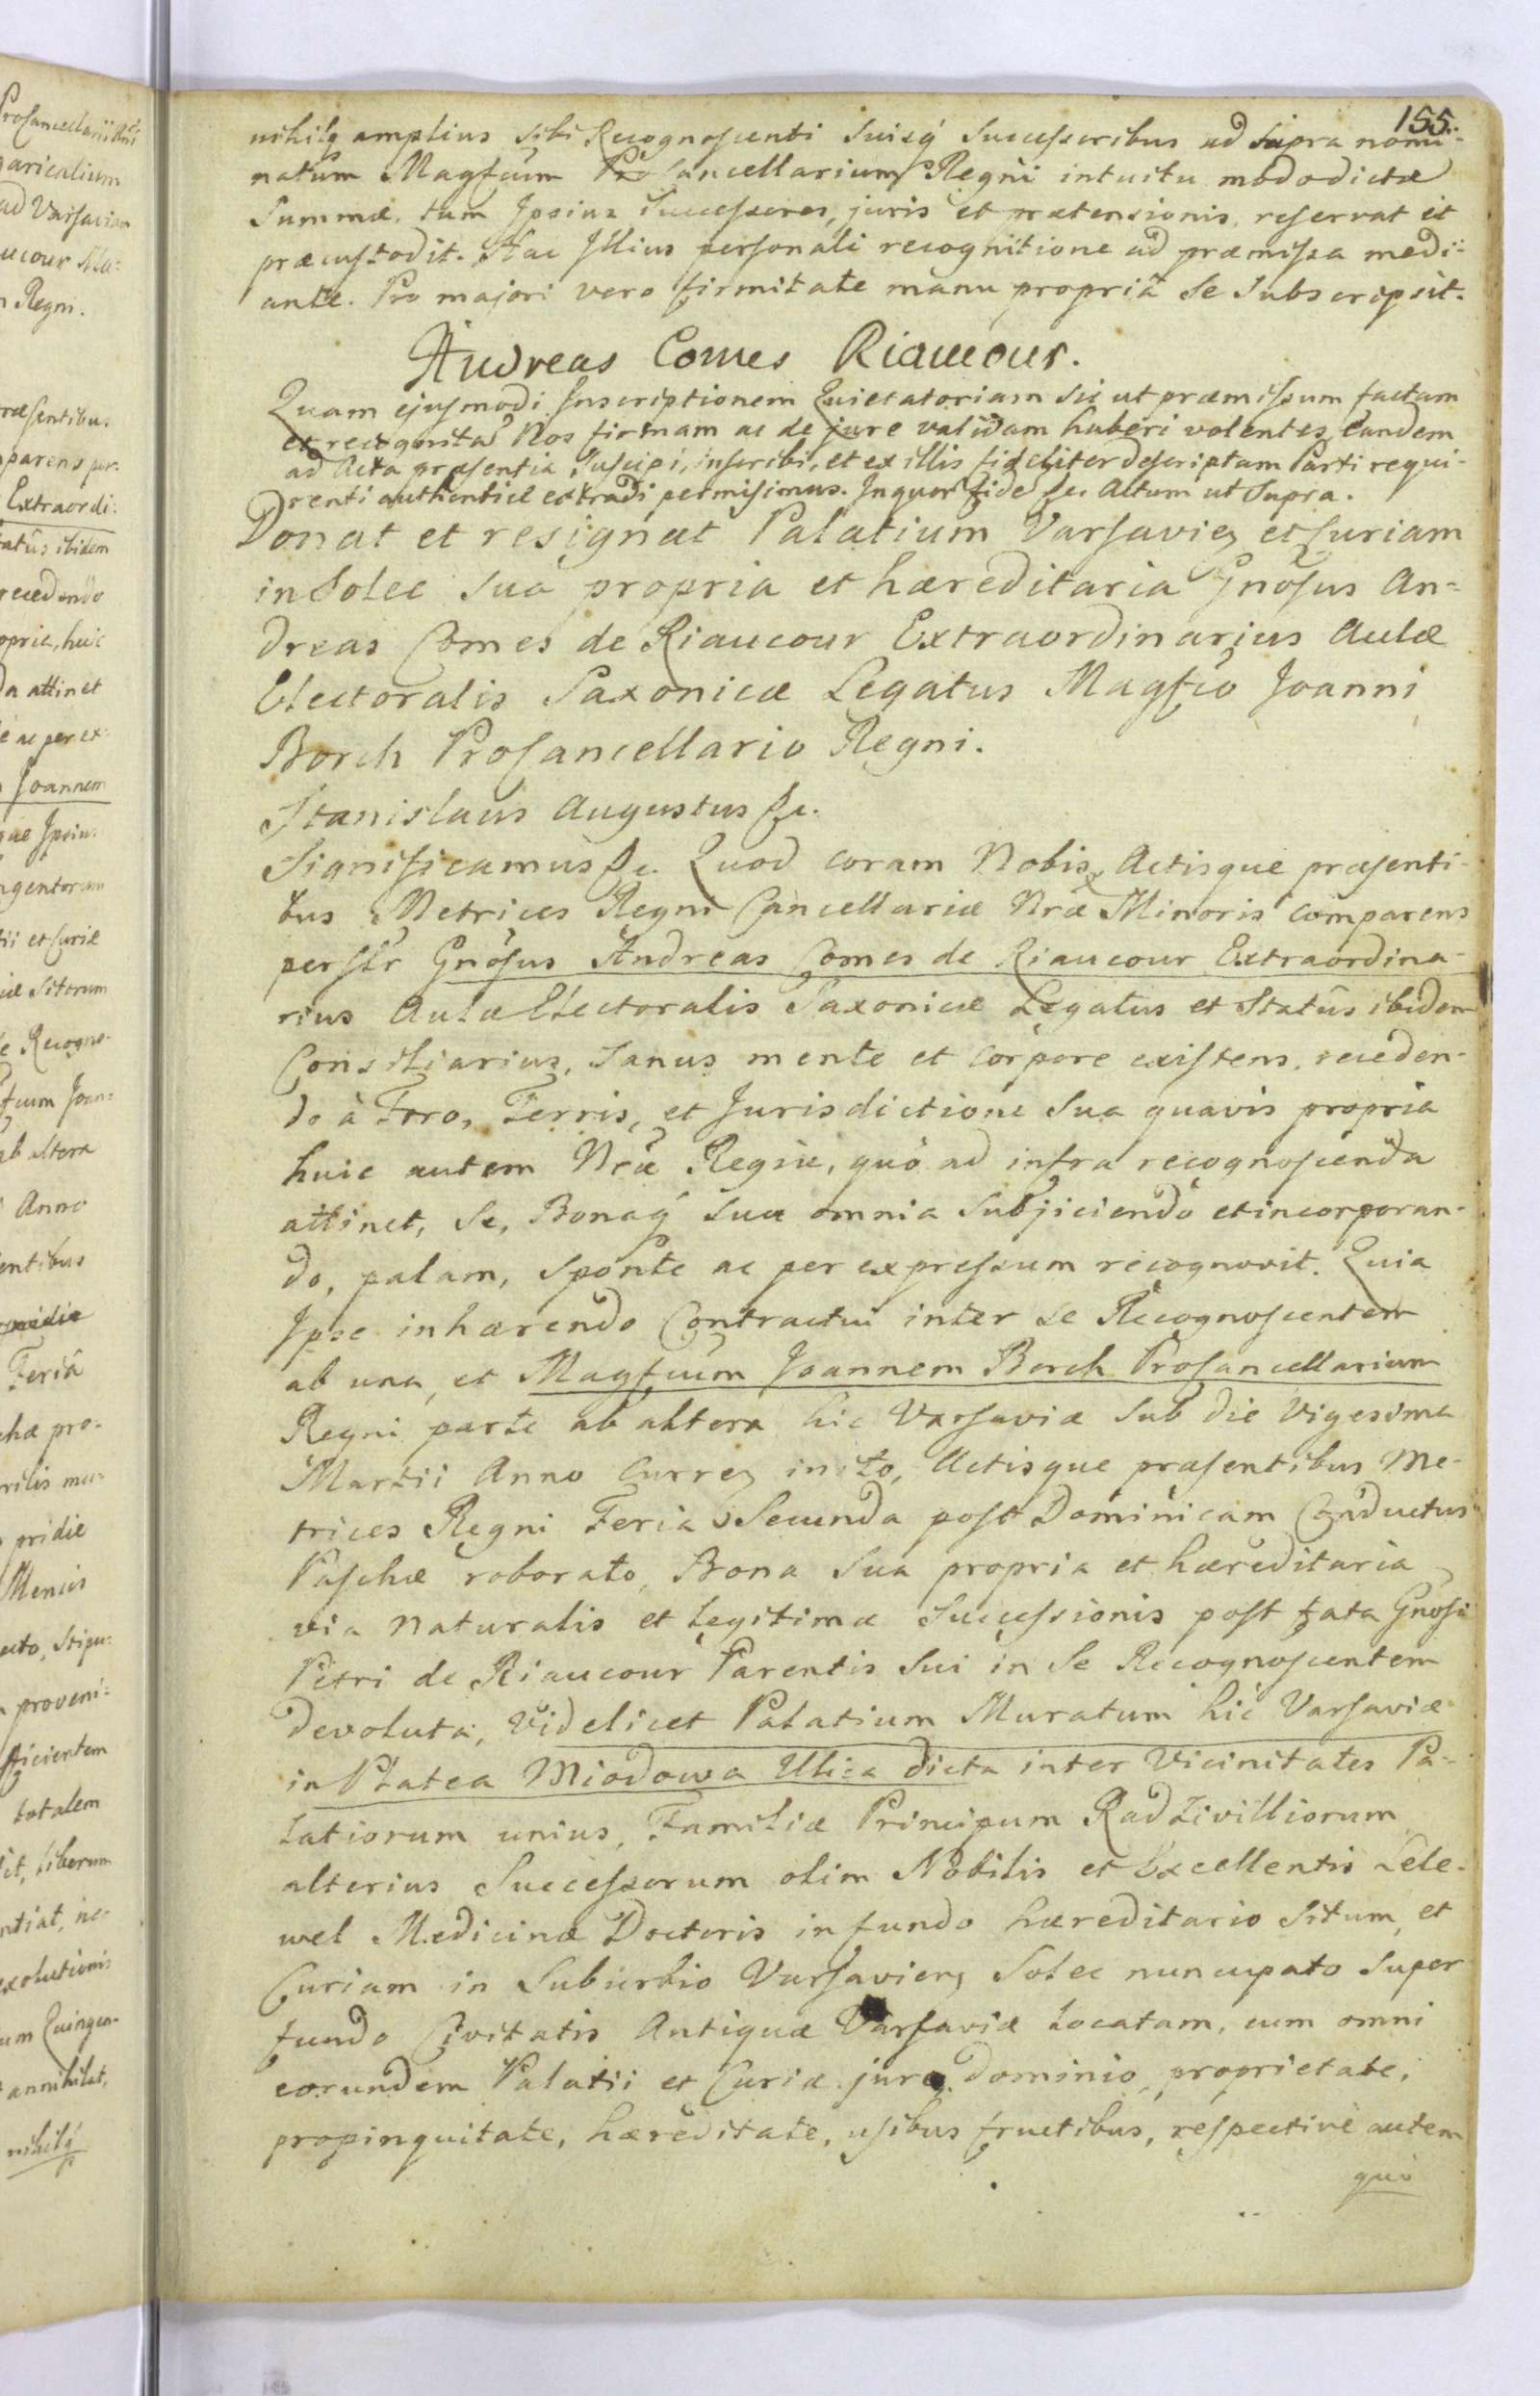 155.
nihilq amplius sibi Recognoscenti Suisq Successoribus ad Supra nomi-
natum Magfcum Procancellarium Regni intuitu modo dictæ
Summæ tum Ipsius Successores, juris et prætensionis, reservat et
præcustodit. Hac Illius personali recognitione ad præmissa medi-
ante. Pro majori vero firmitate manu propriâ Se Subscripsit.
Andreas Comes Riaucour.
Quam ejusmodi Inscriptionem Quietatoriam Sic ut præmissum factam
et recognitã Nos firmam ac de jure validam haberi volentes, Eandem
ad Acta præsentia Suscipi, inscribi, et ex illis fideliter descriptam Parti requi-
renti authentice extradi permisimus. In quor fide &c. Actum ut Supra.
Donat et resignat Palatium Varsavien et Curiam
in Solec Sua propria et hæreditaria Gnosus An-
dreas Comes de Riaucour Extraordinarius Aulæ
Electoralis Saxonicæ Legatus Magfco Joanni
Borch Procancellario Regni.
Stanislaus Augustus &c.
Significamus &c. Quod coram Nobis, Actisque præsenti-
bus Metrices Regni Cancellariæ Nræ Minoris comparens
persłr Gnosus Andreas Comes de Riaucour Extraordina-
rius Aulæ Electoralis Saxonicæ Legatus et Statûs ibidem
Consiliarius, Sanus mente et corpore existens, receden-
do à Foro, Terris, et Jurisdictione Sua quavis propria
huic autem Nræ Regiæ, quò ad infra recognoscenda
attinet, Se, Bonaq Sua omnia Subjiciendo et incorporan-
do, palam, Sponte ac per expressum recognovit. Quia
Ipse inhærendo Contractui inter Se Recognoscentem
ab una, et Magfcum Joannem Borch Procancellarium
Regni parte ab altera hic Varsaviæ Sub die Vigesima
Martii Anno Curren inito, Actisque præsentibus Me-
trices Regni Feria Secunda post Dominicam Conductus
Paschæ roborato, Bona Sua propria et hæreditaria
via Naturalis et legitimæ Successionis post fata Gnosi
Petri de Riaucour Parentis Sui in Se Recognoscentem
devoluta, Videlicet Palatium Muratum hic Varsaviæ
in Platea Miodowa Ulica dicta inter Vicinitates Pa-
latiorum unius, Familiæ Principum Radziviliorum
alterius Successorum olim Nobilis et Excellentis Lele-
wel Medicinæ Doctoris in fundo hæreditario Situm, et
Curiam in Suburbio Varsavien Solec nuncupato Super
fundo Civitatis Antiquæ Varsaviæ locatam, cum omni
eorundem Palatii et Curiæ jure dominio, proprietate,
propinquitate, hæreditate, usibus fructibus, respective autem
quò